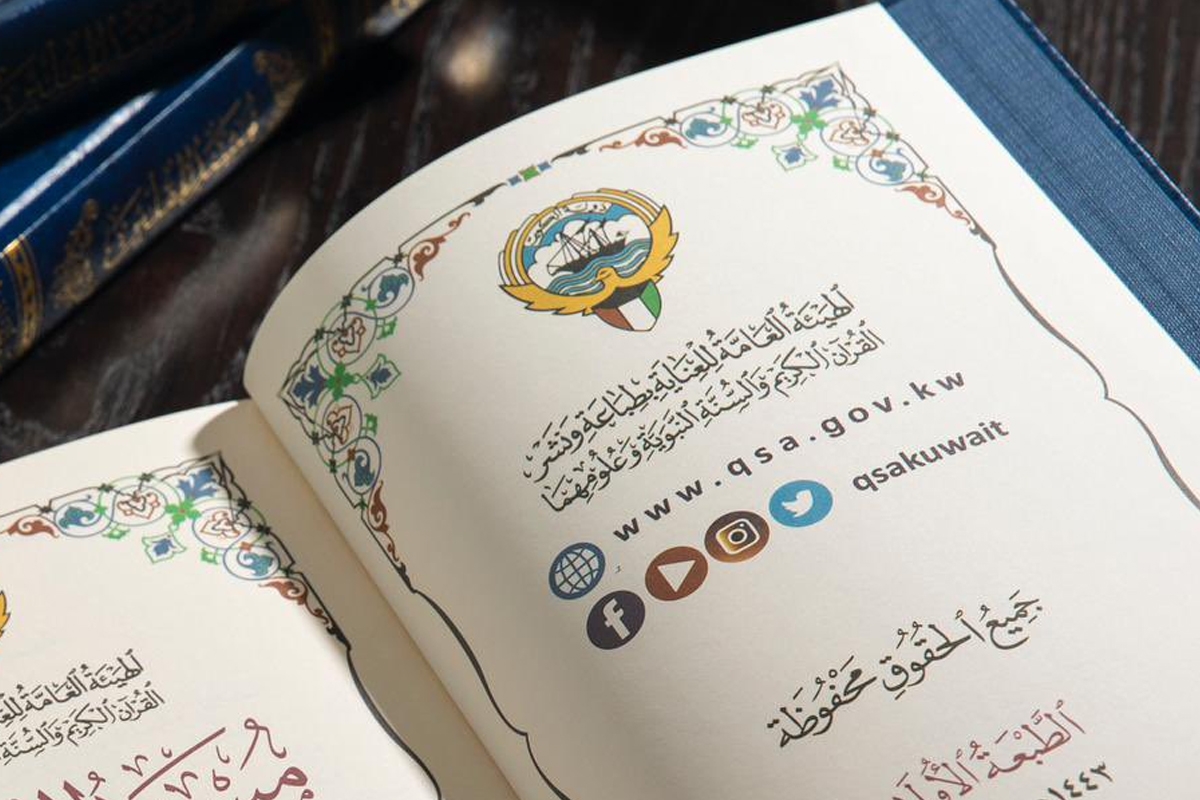 دولة الكويت
الهَيْئَةُ العَامَّةُ لِلْعِنَايَةِ بِطِبَاعَةِ وَنَشْرِ
القُرْآنِ الكَرِيمِ وَالسُّنَّةِ النَّبَوِيَّةِ وَعُلُومِهِمَا
www.qsa.gov.kw
qsakuwait
جَمِيعُ الحُقُوقِ مَحْفُوظَة
الطَّبْعَةُ الأُولَى
١٤٤٣
الهَيْئَةُ العَامَّةُ
القُرْآنِ الكَرِيمِ وَالسُّنَّةِ